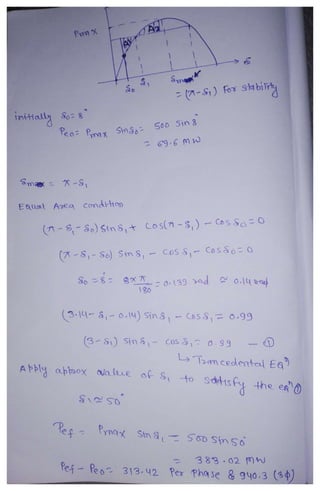 Pmax
A1
A2
δ
δ0 δ1 δmax
= (π-δ1) For stability
initially δ0 = 8°
Pe0 = Pmax Sinδ0 = 500 Sin 8°
= 69.6 MW
δmax = π-δ1
Equal Area condition
(π-δ1-δ0) Sinδ1 + Cos(π-δ1) - Cosδ0 = 0
(π-δ1-δ0) Sinδ1 - Cosδ1 - Cosδ0 = 0
δ0 = 8° = 8×π/180 = 0.139 rad ≃ 0.14 rad
(3.14-δ1-0.14) Sinδ1 - Cosδ1 = 0.99
(3-δ1) Sinδ1 - Cosδ1 = 0.99 — ①
↳ Trancedental Eqn
Apply approx value of δ1 to satisfy the eqn ①
δ1 ≃ 50°
Pef = Pmax Sinδ1 = 500 Sin 50°
= 383.02 MW
Pef - Pe0 = 313.42 Per Phase & 940.3 (3ϕ)